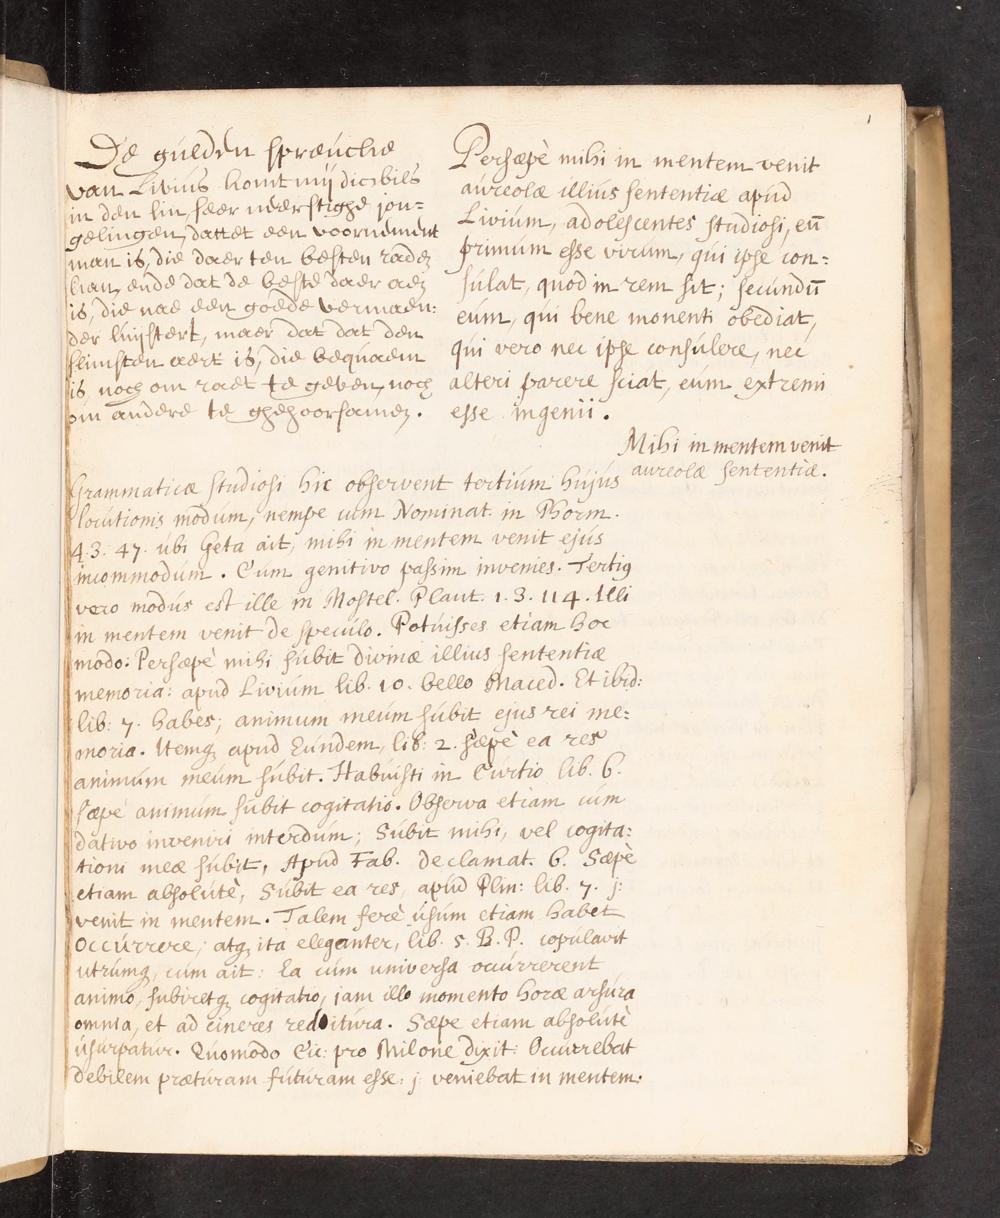 1
De gulden spreucke
van Livius komt mij dicwils
in den sin, seer neerstighe jon=
gelingen, dattet een voornement
man is, die daer ten besten raden
kan, ende dat de beste daer aen
is, die nae een goede vermaen:
der luijstert, maer dat dat den
slimsten aert is, die bequaem
is, noch om raet te geven, noch
om andere te ghehoorsamen.
Persæpè mihi in mentem venit
aureolæ illius sententiæ apud
Livium, adolescentes studiosi, eū
primum esse virum, qui ipse con:
sulat, quod in rem sit; secundū
eum, qui bene monenti obediat,
qui vero nec ipse consulere, nec
alteri parere sciat, eum extremi
esse ingenii.
Mihi in mentem venit
aureolæ sententiæ.
Grammaticæ studiosi hic observent tertium hujus
locutionis modum, nempe cum Nominat. in Phorm.
4.3. 47. ubi Geta ait, mihi in mentem venit ejus
incommodum. Cum genitivo passim invenies. Tertiꝰ
vero modus est ille in Mostel. Plaut. 1. 3. 114. Illi
in mentem venit de speculo. Potuisses etiam hoc
modo: Persæpè mihi subit divinæ illius sententiæ
memoria: apud Livium lib. 10. bello Maced. Et ibid:
lib: 7. habes; animum meum subit ejus rei me:
moria. Itemq; apud Eundem, lib: 2. sæpè ea res
animum meum subit. Habuisti in Curtio lib. 6.
sæpè animum subit cogitatio. Observa etiam cum
dativo inveniri interdum; Subit mihi, vel cogita:
tioni meæ subit, Apud Fab. declamat. 6. Sæpè
etiam absolutè, Subit ea res, apud Plin: lib. 7. j:
venit in mentem. Talem ferè usum etiam habet
Occurrere, atq; ita eleganter, lib. 5. B. P. copulavit
utrumq; cum ait: Ea cum universa occurrerent
animo, subiretq; cogitatio, jam illo momento horæ arsura
omnia, et ad cineres reditura. Sæpe etiam absolutè
usurpatur. Quomodo Cic: pro Milone dixit: Occurrebat
debilem præturam futuram esse: j: veniebat in mentem: